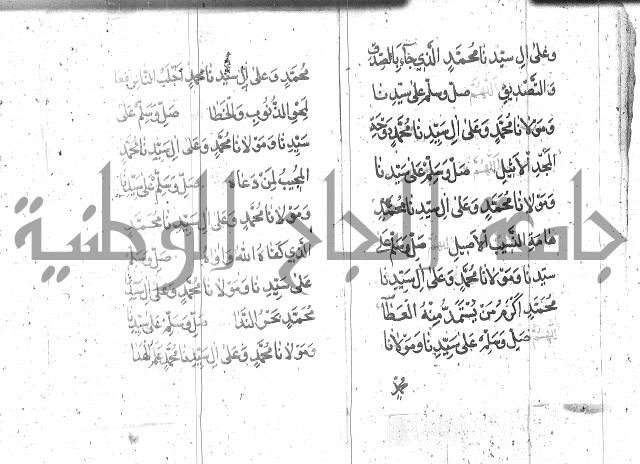 وعلى ال سيدنا محمد الذي جاء بالصدق
والتصديق اللهم صل وسلم على سيدنا
ومولانا محمد وعلى ال سيدنا محمد دوحة
المجد الاثيل اللهم صل وسلم على سيدنا
ومولانا محمد وعلى ال سيدنا محمد
هامة النسب الاصيل اللهم صل وسلم على
سيدنا ومولانا محمد وعلى ال سيدنا
محمد اكرم من يستمد منه العطا
اللهم صل وسلم على سيدنا ومولانا
محمد
محمد وعلى ال سيدنا محمد اجلب الناس نفعا
لمحو الذنوب والخطا صل وسلم على
سيدنا ومولانا محمد وعلى ال سيدنا محمد
المجيب لمن دعاه صل وسلم على سيدنا
ومولانا محمد وعلى ال سيدنا محمد
الذي كفاه الله واواه صل وسلم
على سيدنا ومولانا محمد وعلى ال سيدنا
محمد بحر الندا صل وسلم على سيدنا
ومولانا محمد وعلى ال سيدنا محمد علم الهدا
جامعة النجاح الوطنية